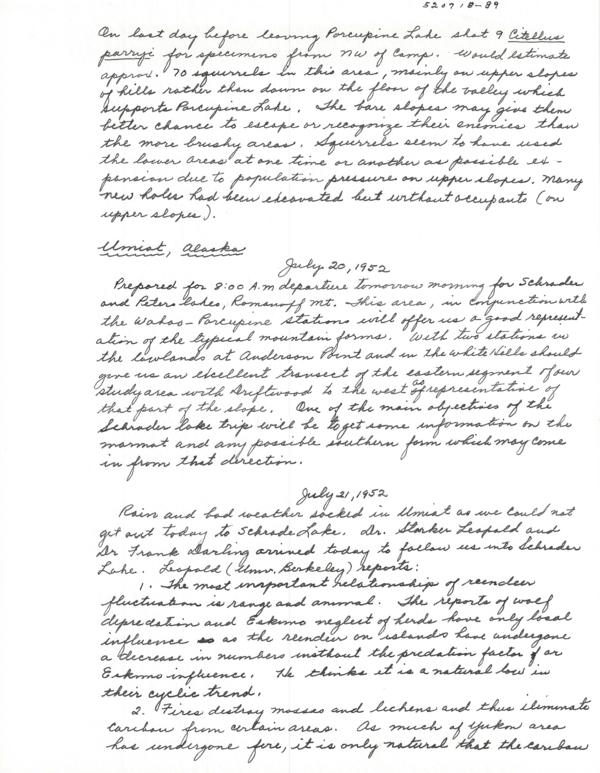 520718-89
On last day before leaving Porcupine Lake shot 9 Citellus
parryi for specimens from NW of Camp. Would estimate
approx. 70 squirrels in this area, mainly on upper slopes
of hills rather than down on the floor of the valley which
supports Porcupine Lake. The bare slopes may give them
better chance to escape or recognize their enemies than
the more brushy areas. Squirrels seem to have used
the lower areas at one time or another as possible ex-
pansion due to population pressure on upper slopes. Many
new holes had been excavated but without occupants (on
upper slopes).
Umiat, Alaska
July 20, 1952
Prepared for 8:00 A.m departure tomorrow morning for Schrader
and Peters Lakes, Romanzoff Mt. This area, in conjunction with
the Wahoo-Porcupine stations will offer us a good represent-
ation of the typical mountain forms. With two stations in
the lowlands at Anderson Point and in the White Hills should
give us an excellent transect of the eastern segment of our
study area with Driftwood to the west as representative of
that part of the slope. One of the main objectives of the
Schrader Lake trip will be to get some information on the
marmot and any possible southern form which may come
in from that direction.
July 21, 1952
Rain and bad weather socked in Umiat as we could not
get out today to Schrade Lake. Dr. Starker Leopold and
Dr Frank Darling arrived today to follow us into Schrader
Lake. Leopold (Univ. Berkeley) reports:
1. The most important relationship of reindeer
fluctuation is range and animal. The reports of wolf
depredation and Eskimo neglect of herds have only local
influence as the reindeer on islands have undergone
a decrease in numbers without the predation factor or
Eskimo influence. He thinks it is a natural low in
their cyclic trend.
2. Fires destroy mosses and lichens and thus eliminate
caribou from certain areas. As much of Yukon area
has undergone fire, it is only natural that the caribou